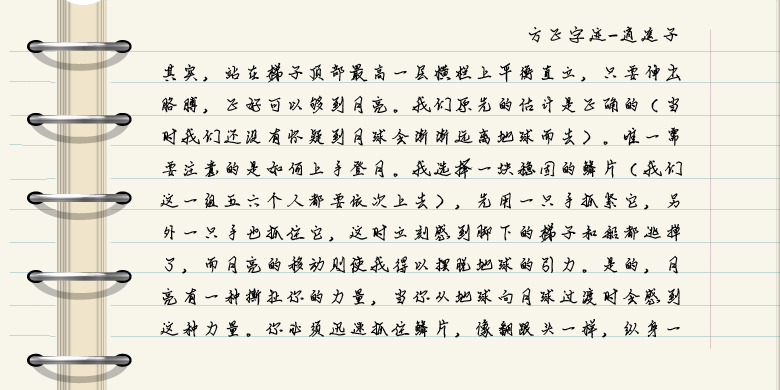 方正字迹-逍遥子
其实，站在梯子顶部最高一层横栏上平衡直立，只要伸出
胳膊，正好可以够到月亮。我们原先的估计是正确的（当
时我们还没有怀疑到月球会渐渐远离地球而去）。唯一需
要注意的是如何上手登月。我选择一块稳固的鳞片（我们
这一组五六个人都要依次上去），先用一只手抓紧它，另
外一只手也抓住它，这时立刻感到脚下的梯子和船都逃掉
了，而月亮的移动则使我得以摆脱地球的引力。是的，月
亮有一种撕扯你的力量，当你从地球向月球过渡时会感到
这种力量。你必须迅速抓住鳞片，像翻跟头一样，纵身一